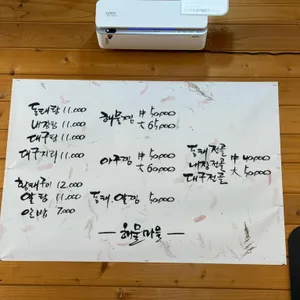 동태탕 11.000
내장탕 11.000
대구탕 11.000
대구지리 11.000
황태구이 12.000
알탕 11.000
알밥 7.000
해물찜 中 50.000
大 65.000
아구찜 中 50.000
大 60.000
동태, 알찜 50.000
동태전골
내장전골 中 40.000
대구전골 大 50.000
해물마을